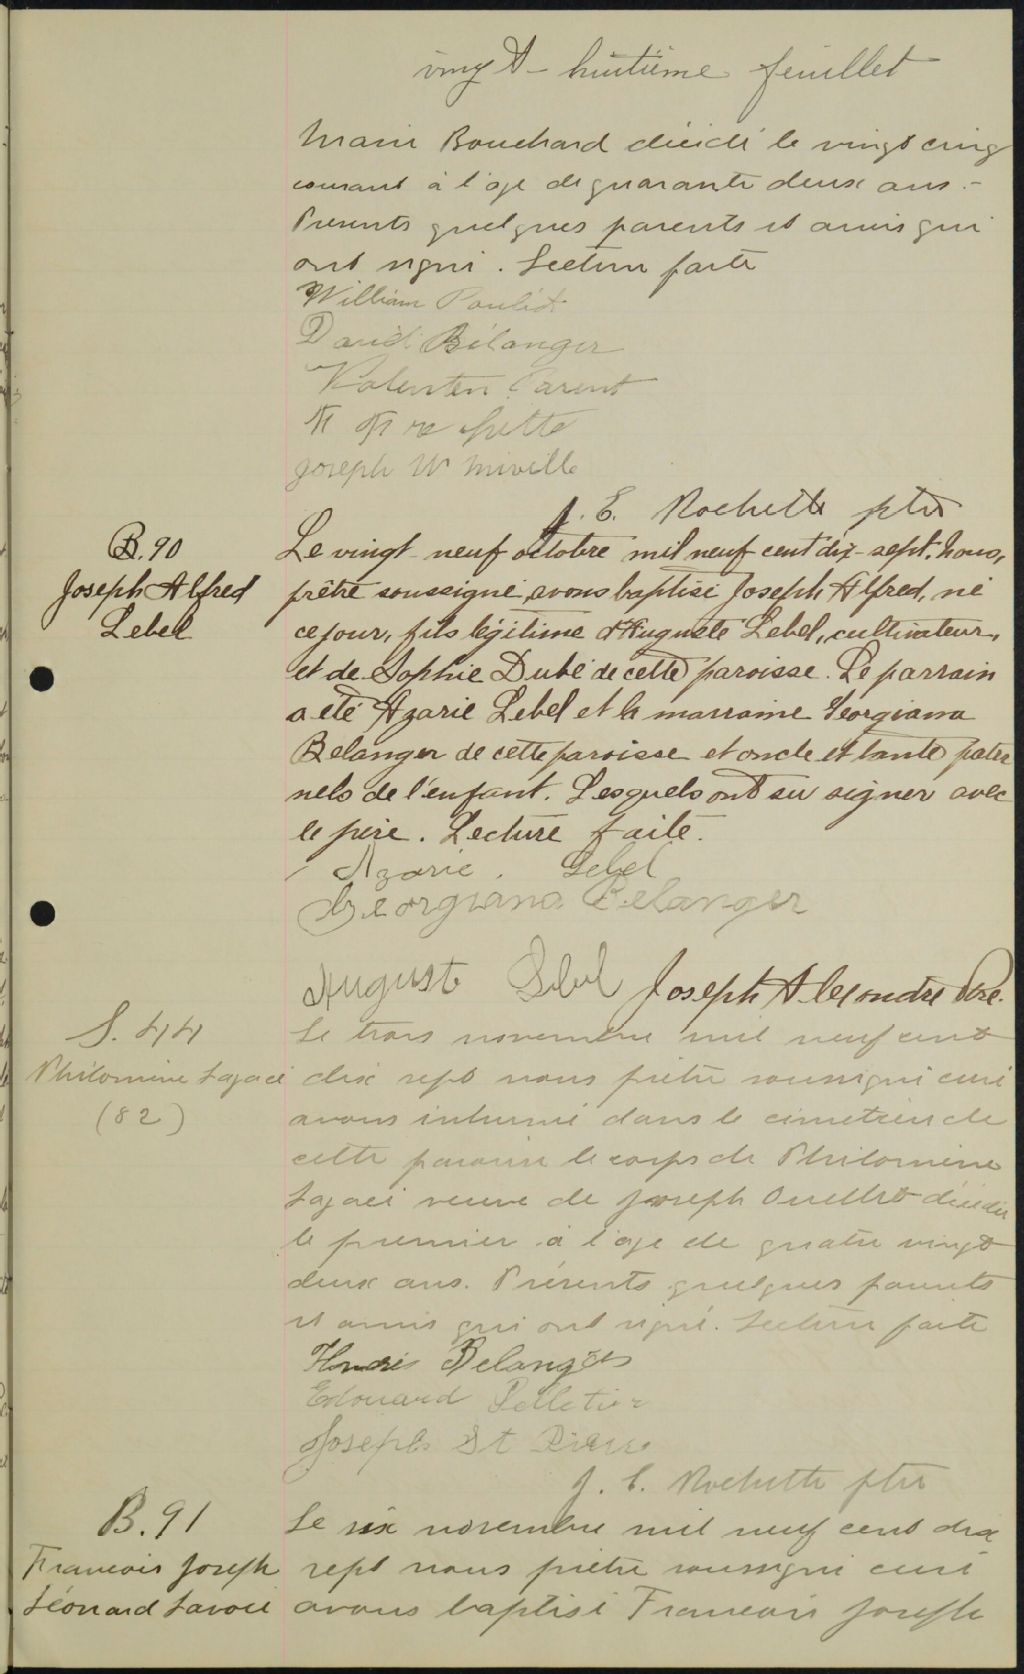 vingt-huitième feuillet
Marie Bouchard décédé le vingt cinq
courant à l'age de quarante deux ans.-
Présents quelques parents et amis qui
ont signé. Lecture faite
William Pouliot
David Bélanger
Valentin Parent
Joseph W Miville
J. E. Rochette ptre
B.90
Joseph Alfred
Lebel
Le vingt-neuf octobre mil neuf cent dix-sept. Nous,
prêtre soussigné, avons baptisé Joseph Alfred, né
ce jour, fils légitime d'Auguste Lebel, cultivateur,
et de Sophie Dubé de cette paroisse. Le parrain
a été Azarie Lebel et la marraine Georgiana
Belanger de cette paroisse et oncle et tante pater
nels de l'enfant. Lesquels ont su signer avec
le père. Lecture faite.
Azarie. Lebel
Georgiana Belanger
Auguste Lebel Joseph Alexandre Ptre.
S. 44
Philomène Lagacé
(82)
Le trois novembre mil neuf cent
dix sept nous prêtre soussigné curé
avons inhumé dans le cimetière de
cette paroisse le corps de Philomène
Lagacé veuve de Joseph Ouellet décédée
le premier à l'age de quatre vingt
deux ans. Présents quelques parents
et amis qui ont signé. Lecture faite
Belanger
Edouard Pelletier
Joseph St Pierre
J. E. Rochette ptre
B.91
Francois Joseph
Léonard Lavoie
Le six novembre mil neuf cent dix
sept nous prêtre soussigné curé
avons baptisé Francois Joseph